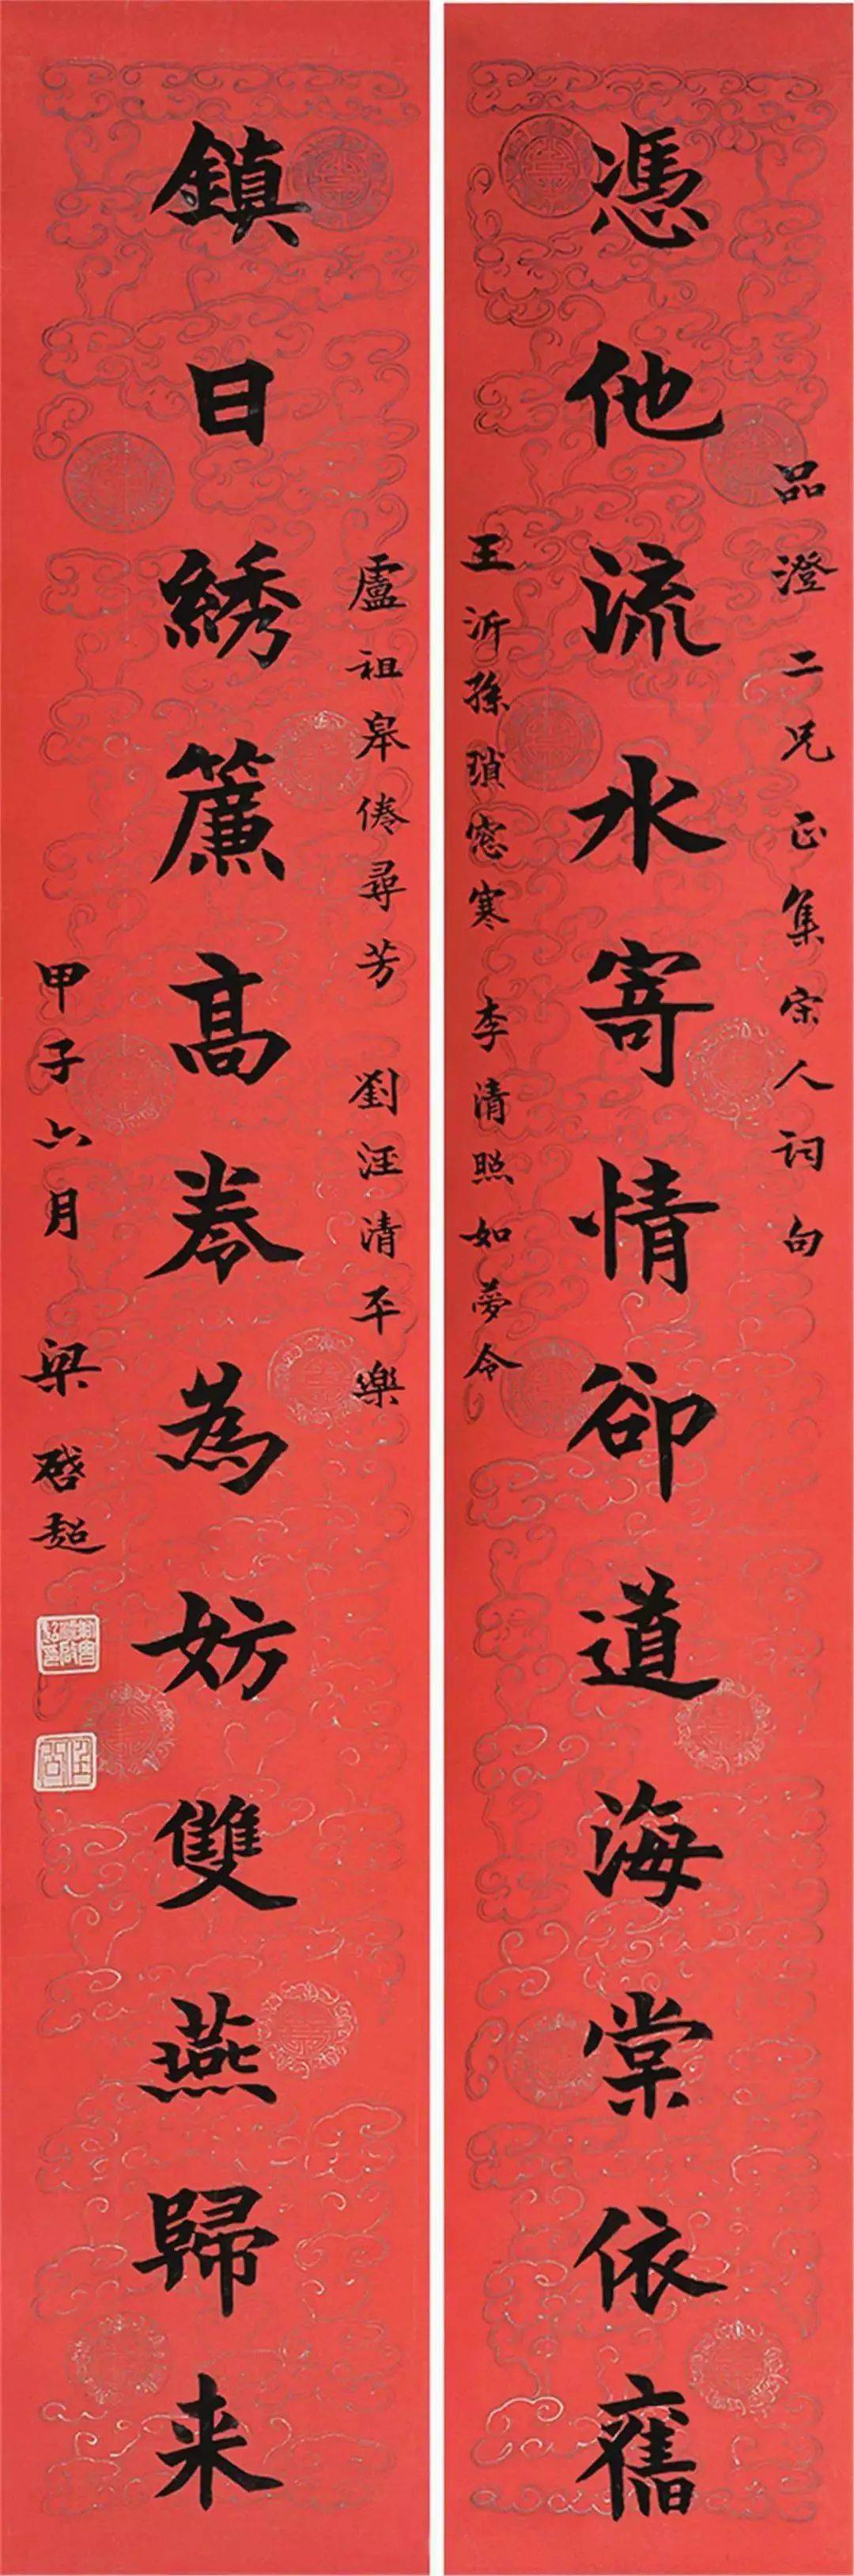 品澄二兄正集宋人词句
憑他流水寄情卻道海棠依舊
王沂孫瑣窓寒 李清照如夢令
盧祖皋倦尋芳 劉汪清平樂
鎮日綉簾高卷為妨雙燕歸来
甲子六月 梁啓超